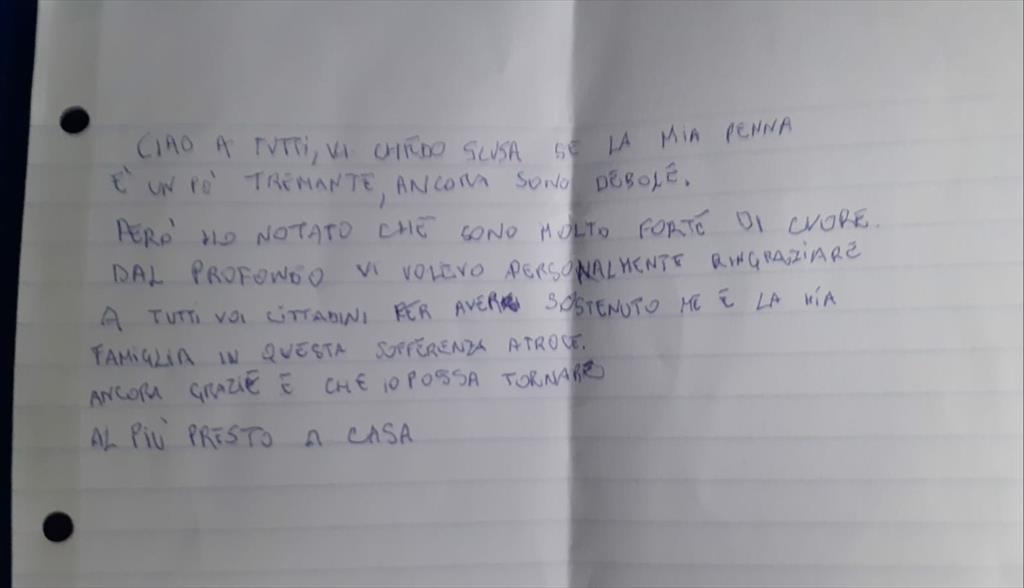 CIAO A TUTTI, VI CHIEDO SCUSA SE LA MIA PENNA
E' UN PO' TREMANTE, ANCORA SONO DEBOLE.
PERÒ HO NOTATO CHE SONO MOLTO FORTE DI CUORE.
DAL PROFONDO VI VOLEVO PERSONALMENTE RINGRAZIARE
A TUTTI VOI CITTADINI PER AVER SOSTENUTO ME E LA MIA
FAMIGLIA IN QUESTA SOFFERENZA ATROCE.
ANCORA GRAZIE E CHE IO POSSA TORNARE
AL PIÙ PRESTO A CASA